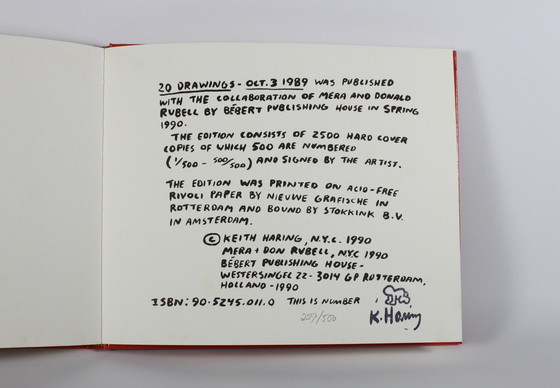 20 DRAWINGS - OCT. 3 1989 WAS PUBLISHED
WITH THE COLLABORATION OF MERA AND DONALD
RUBELL BY BÉBERT PUBLISHING HOUSE IN SPRING
1990.
THE EDITION CONSISTS OF 2500 HARD COVER
COPIES OF WHICH 500 ARE NUMBERED
(1/500 - 500/500) AND SIGNED BY THE ARTIST.
THE EDITION WAS PRINTED ON ACID-FREE
RIVOLI PAPER BY NIEUWE GRAFISCHE IN
ROTTERDAM AND BOUND BY STOKKINK B.V.
IN AMSTERDAM.
© KEITH HARING, N.Y.C. 1990
MERA + DON RUBELL, NYC 1990
BÉBERT PUBLISHING HOUSE -
WESTERSINGEL 22 - 3014 GP ROTTERDAM,
HOLLAND - 1990
ISBN: 90.5245.011.0 THIS IS NUMBER
207/500 K. Haring